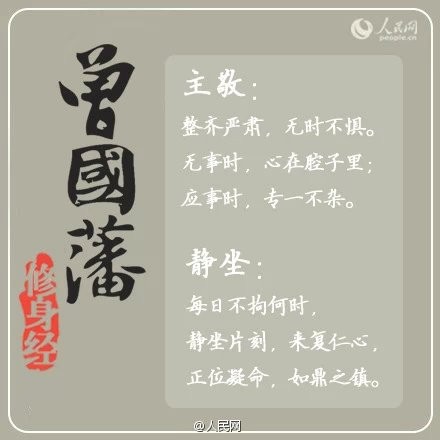 人民网
people.cn
曾國藩
修身经
主敬：
整齐严肃，无时不惧。
无事时，心在腔子里；
应事时，专一不杂。
静坐：
每日不拘何时，
静坐片刻，来复仁心，
正位凝命，如鼎之镇。
@人民网